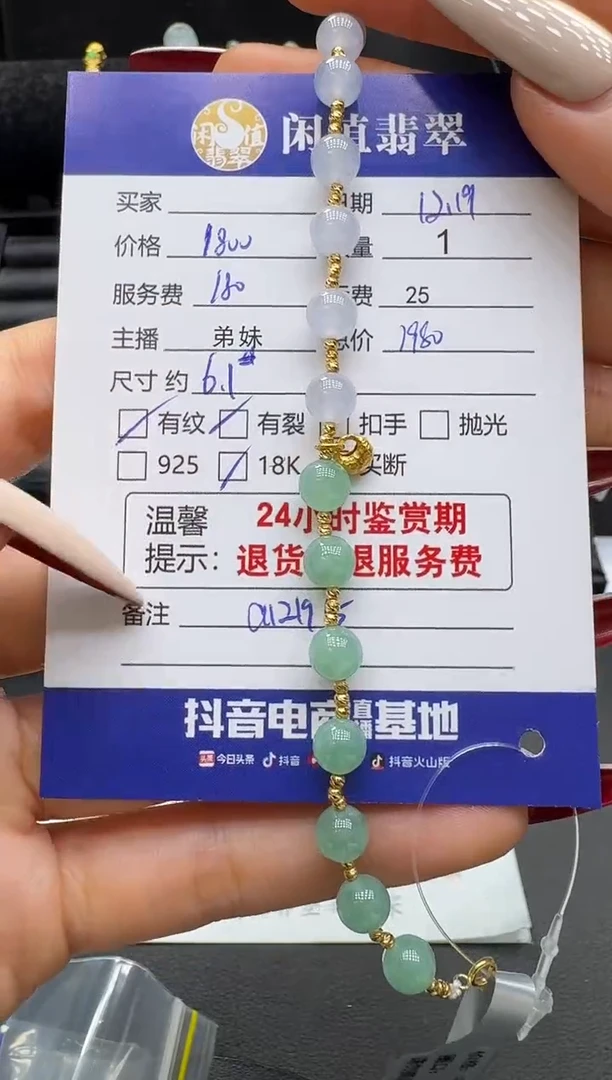 闲值翡翠
闲值翡翠
买家 期 12.19
价格 1800 量 1
服务费 180 费 25
主播 弟妹 总价 1980
尺寸 约 6.1#
有纹 有裂 扣手 抛光
925 18K 买断
温馨 24小时鉴赏期
提示: 退货 退服务费
备注
抖音电商直播基地
头条 今日头条 抖音 抖音火山版